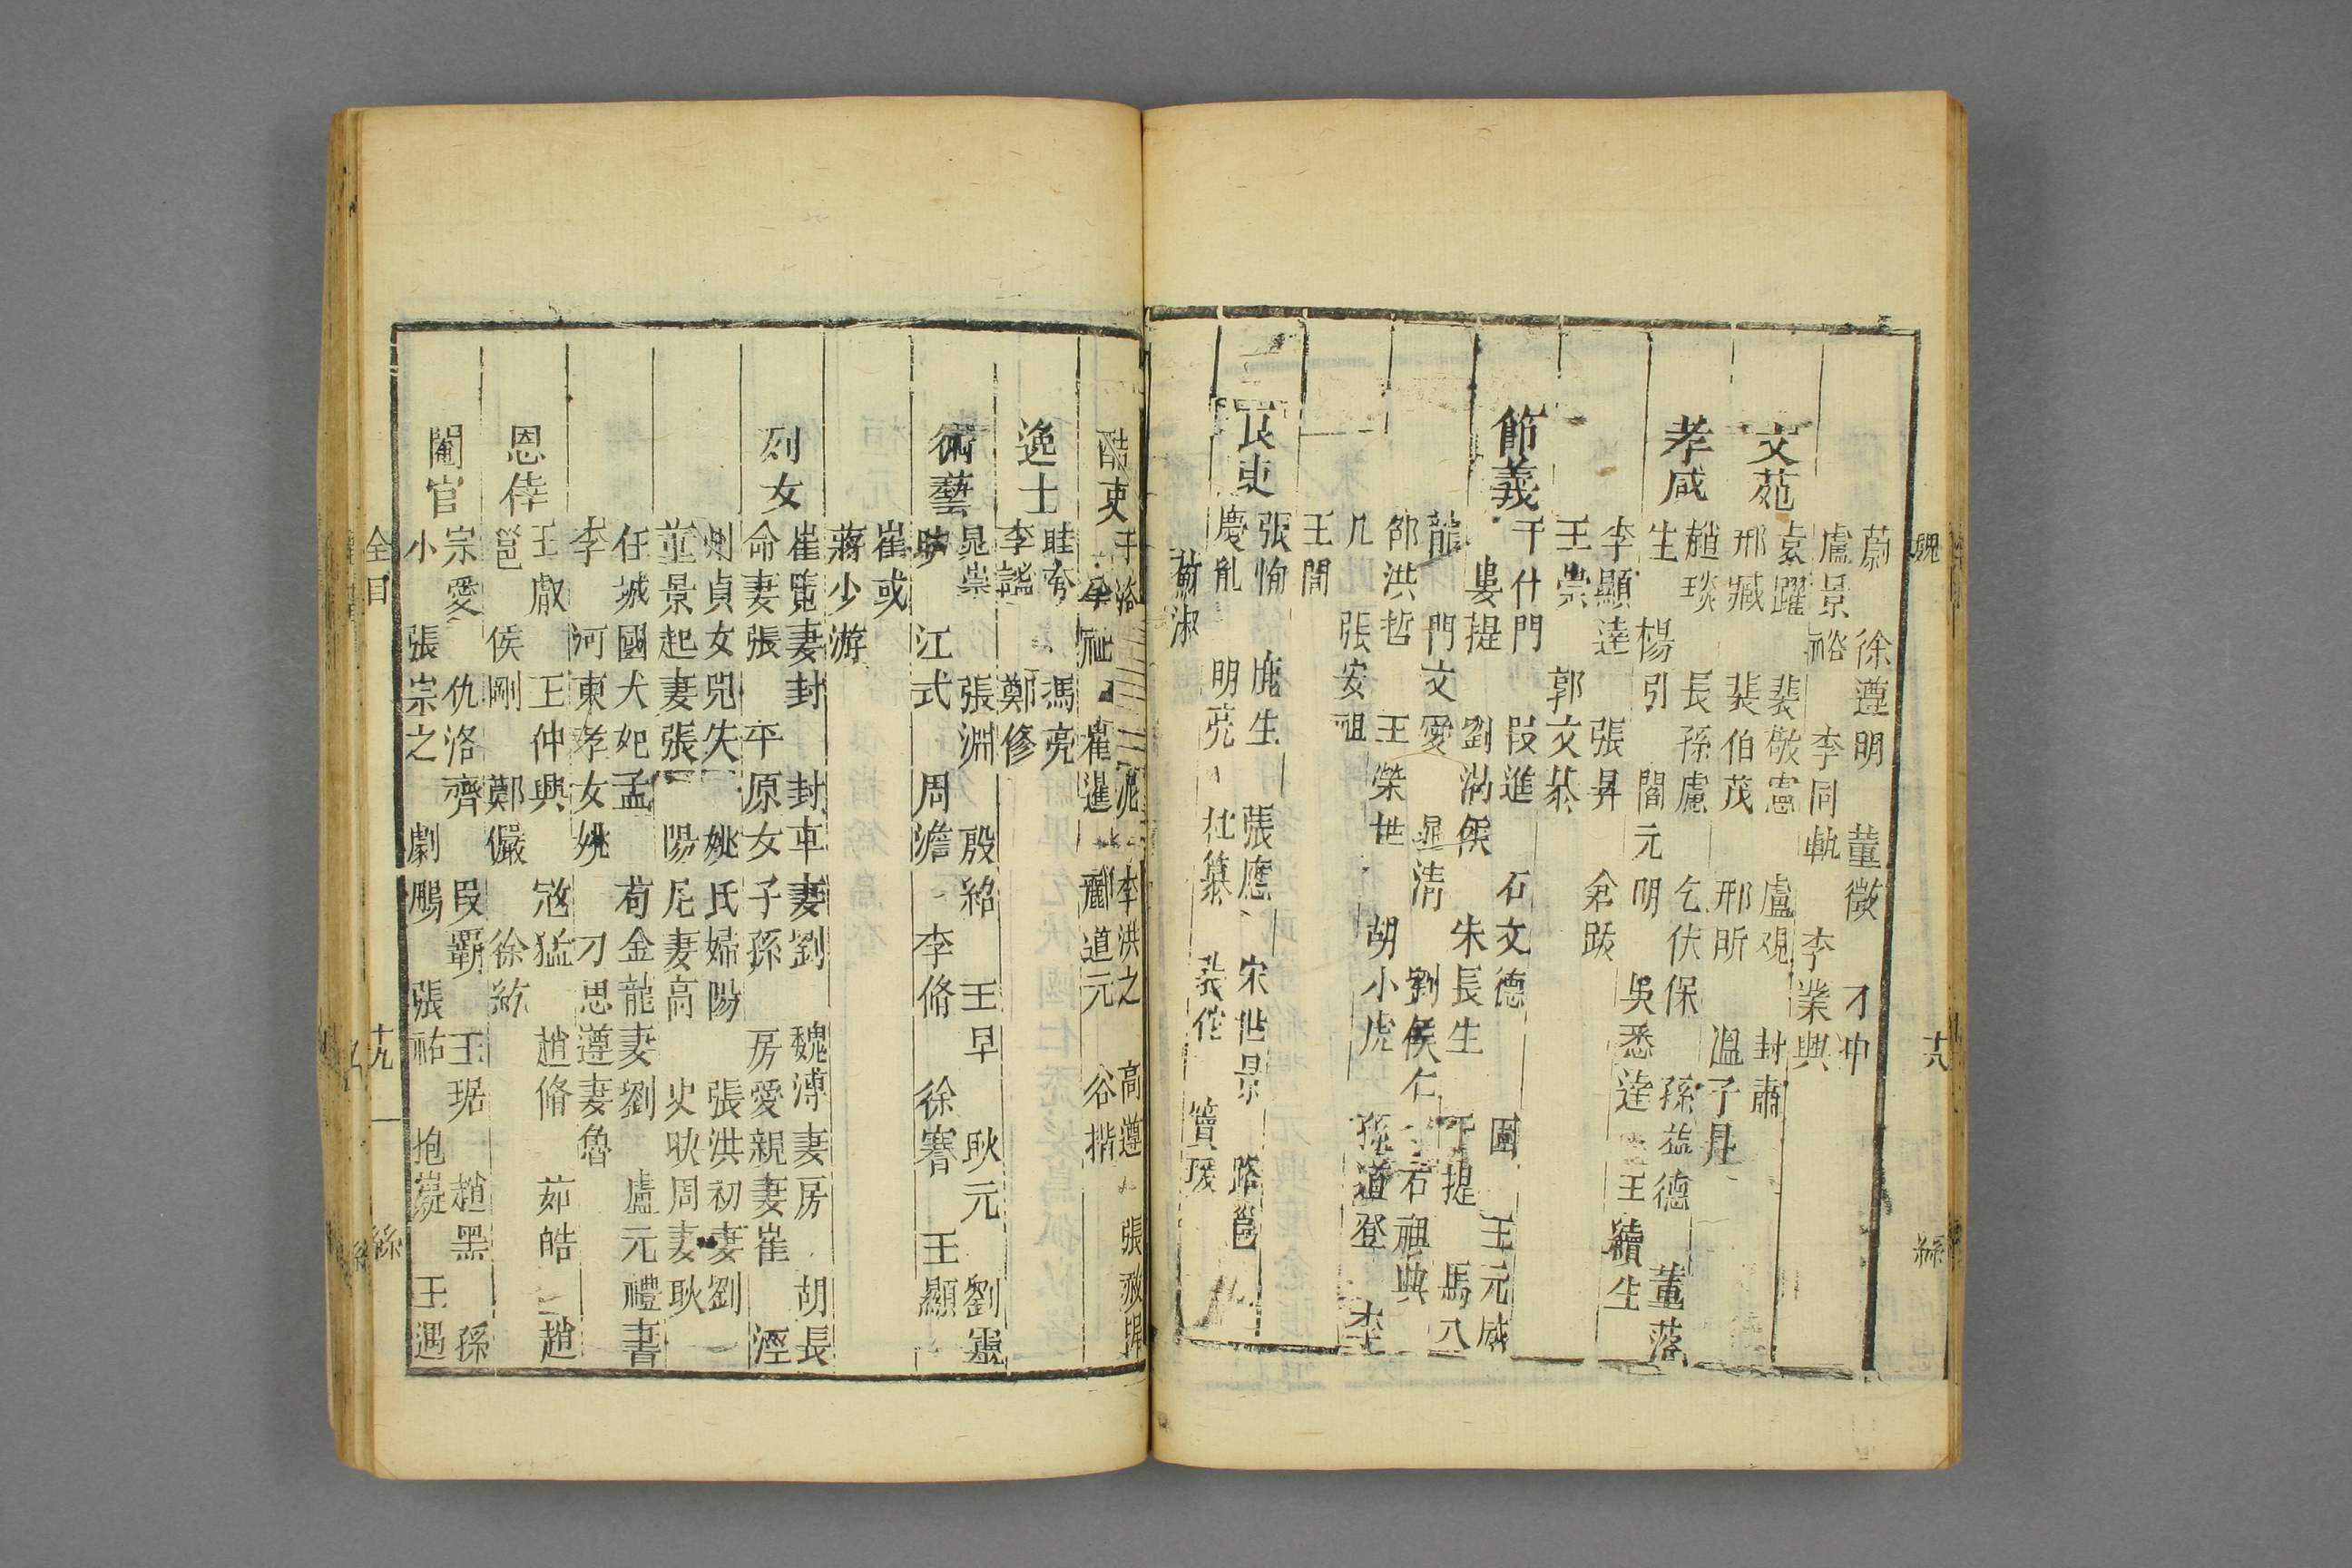 魏
蔚 徐遵明 董徵 刁冲
盧景裕 李同軌 李業興
文苑
袁躍 裴敬憲 盧觀 封肅
邢臧 裴伯茂 邢昕 溫子昇
孝感
趙琰 長孫慮 乞伏保 孫益德 董洛
生 楊引 閻元明 吳悉達 王續生
李顯達 張昇 倉跋
王崇 郭文恭
節義
于什門 段進 石文德 王元威
婁提 劉渴侯 朱長生 于提 馬八
龍 門文愛 晁清 劉侯仁 石祖興
邵洪哲 王榮世 胡小虎 孫道登 李
几 張安祖
王閭
良吏
張恂 鹿生 張應 宋世景 路邕
慶胤 明亮 杜纂 裴佗 竇瑗
蘇淑
十八
酷吏
于洛 泥 李洪之 高遵 張赦提
羊祉 崔暹 酈道元 谷楷
逸士
眭夸 馮亮
李謐 鄭修
術藝
晁崇 張淵 殷紹 王早 耿元 劉靈
助 江式 周澹 李脩 徐謇 王顯
崔彧
蔣少游
列女
崔覽妻封 封卓妻劉 魏溥妻房 胡長
命妻張 平原女子孫 房愛親妻崔 涇
州貞女兕先 姚氏婦陽 張洪初妻劉
董景起妻張 陽尼妻高 史映周妻耿
任城國太妃孟 苟金龍妻劉 盧元禮妻
李 河東孝女姚 刁思遵妻魯
恩倖
王叡 王仲興 寇猛 趙脩 茹皓 趙
邕 侯剛 鄭儼 徐紇
閹官
宗愛 仇洛齊 段霸 王琚 趙黑 孫
小 張宗之 劇鵬 張祐 抱嶷 王遇
全目
十九